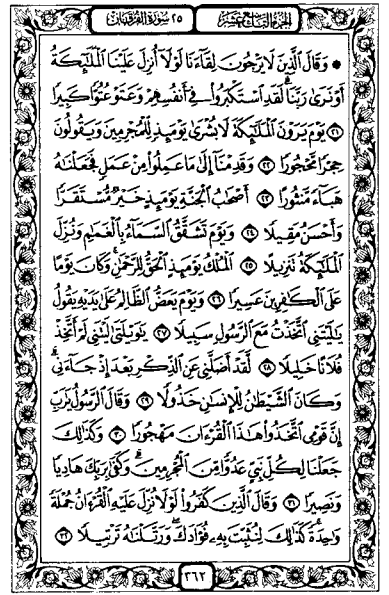 الجزء التاسع عشر ٢٥ سورة الفرقان
۞ وَقَالَ ٱلَّذِينَ لَا يَرْجُونَ لِقَآءَنَا لَوْلَآ أُنزِلَ عَلَيْنَا ٱلْمَلَٰٓئِكَةُ
أَوْ نَرَىٰ رَبَّنَا لَقَدِ ٱسْتَكْبَرُوا۟ فِىٓ أَنفُسِهِمْ وَعَتَوْ عُتُوًّا كَبِيرًا
٢١ يَوْمَ يَرَوْنَ ٱلْمَلَٰٓئِكَةَ لَا بُشْرَىٰ يَوْمَئِذٍ لِّلْمُجْرِمِينَ وَيَقُولُونَ
حِجْرًا مَّحْجُورًا ٢٢ وَقَدِمْنَآ إِلَىٰ مَا عَمِلُوا۟ مِنْ عَمَلٍ فَجَعَلْنَٰهُ
هَبَآءً مَّنثُورًا ٢٣ أَصْحَٰبُ ٱلْجَنَّةِ يَوْمَئِذٍ خَيْرٌ مُّسْتَقَرًّا
وَأَحْسَنُ مَقِيلًا ٢٤ وَيَوْمَ تَشَقَّقُ ٱلسَّمَآءُ بِٱلْغَمَٰمِ وَنُزِّلَ
ٱلْمَلَٰٓئِكَةُ تَنزِيلًا ٢٥ ٱلْمُلْكُ يَوْمَئِذٍ ٱلْحَقُّ لِلرَّحْمَٰنِ وَكَانَ يَوْمًا
عَلَى ٱلْكَٰفِرِينَ عَسِيرًا ٢٦ وَيَوْمَ يَعَضُّ ٱلظَّالِمُ عَلَىٰ يَدَيْهِ يَقُولُ
يَٰلَيْتَنِى ٱتَّخَذْتُ مَعَ ٱلرَّسُولِ سَبِيلًا ٢٧ يَٰوَيْلَتَىٰ لَيْتَنِى لَمْ أَتَّخِذْ
فُلَانًا خَلِيلًا ٢٨ لَّقَدْ أَضَلَّنِى عَنِ ٱلذِّكْرِ بَعْدَ إِذْ جَآءَنِى
وَكَانَ ٱلشَّيْطَٰنُ لِلْإِنسَٰنِ خَذُولًا ٢٩ وَقَالَ ٱلرَّسُولُ يَٰرَبِّ
إِنَّ قَوْمِى ٱتَّخَذُوا۟ هَٰذَا ٱلْقُرْءَانَ مَهْجُورًا ٣٠ وَكَذَٰلِكَ
جَعَلْنَا لِكُلِّ نَبِىٍّ عَدُوًّا مِّنَ ٱلْمُجْرِمِينَ وَكَفَىٰ بِرَبِّكَ هَادِيًا
وَنَصِيرًا ٣١ وَقَالَ ٱلَّذِينَ كَفَرُوا۟ لَوْلَا نُزِّلَ عَلَيْهِ ٱلْقُرْءَانُ جُمْلَةً
وَٰحِدَةً كَذَٰلِكَ لِنُثَبِّتَ بِهِۦ فُؤَادَكَ وَرَتَّلْنَٰهُ تَرْتِيلًا ٣٢
٣٦٢